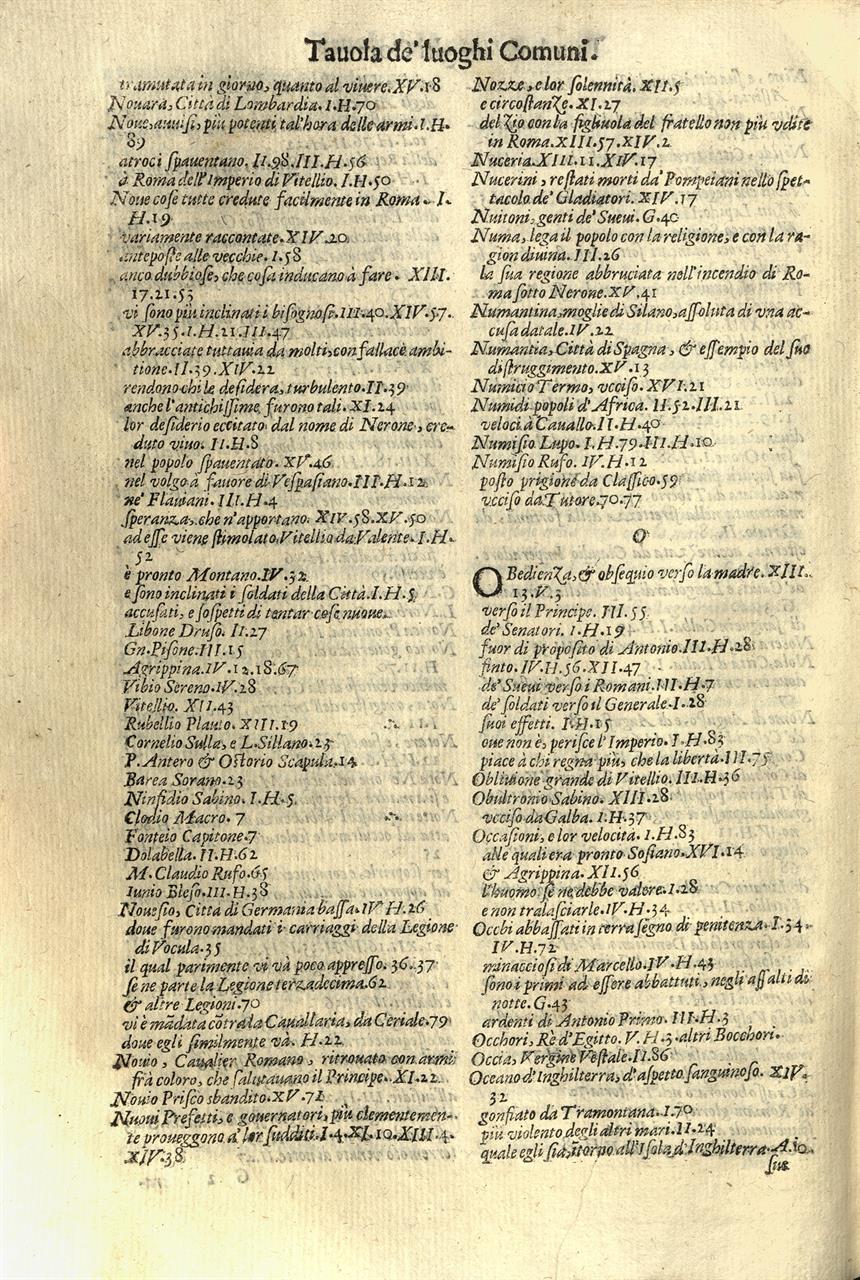 Tauola de' luoghi Comuni.
tramutata in giorno, quanto al viuere. XV.18
Nouara, Città di Lombardia. I.H.70
Noue, auuisi, più potenti tal'hora delle armi. I.H.
89
atroci spauentano. II.98.III.H.56
à Roma dell'Imperio di Vitellio. I.H.50
Noue cose tutte credute facilmente in Roma. I.
H.19
variamente raccontate. XIV.20
anteposte alle vecchie. I.58
anco dubbiose, che cosa inducano à fare. XIII.
17.21.53
vi sono più inclinati i bisognosi. III.40.XIV.57.
XV.35.I.H.21.III.47
abbracciate tuttauia da molti, con fallace ambi-
tione. II.39.XIV.22
rendono chi le desidera, turbulento. II.39
anche l'antichissime furono tali. XI.24
lor desiderio eccitato dal nome di Nerone, cre-
duto viuo. II.H.8
nel popolo spauentato. XV.46
nel volgo à fauore di Vespasiano. III.H.12
ne' Flauiani. III.H.4
speranza, che n'apportano. XIV.58.XV.50
ad esse viene stimolato Vitellio da Valente. I.H.
52
è pronto Montano. IV.32
e sono inclinati i soldati della Città. I.H.5
accusati, e sospetti di tentar cose nuoue.
Libone Druso. II.27
Gn. Pisone. III.15
Agrippina. IV.12.18.67
Vibio Sereno. IV.28
Vitellio. XII.43
Rubellio Plauto. XIII.19
Cornelio Sulla, e L. Sillano. 23
P. Antero & Ostorio Scapula. 14
Barea Sorano. 23
Ninfidio Sabino. I.H.5
Clodio Macro. 7
Fonteio Capitone. 7
Dolabella. II.H.62
M. Claudio Rufo. 65
Iunio Bleso. III.H.38
Nouesio, Città di Germania bassa. IV H.26
doue furono mandati i carriaggi della Legione
di Vocula. 35
il qual parimente vi và poco appresso. 36.37
se ne parte la Legione terzadecima. 62
& altre Legioni. 70
vi è mãdata cõtra la Cauallaria, da Ceriale. 79
doue egli similmente và. H.22
Nouio, Caualier Romano, ritrouato con armi
frà coloro, che salutauano il Principe. XI.22
Nouio Prisco sbandito. XV.71
Nuoui Prefetti, e gouernatori, più clementemen-
te proueggono a' lor sudditi. I.4.XI.10.XIII.4.
XIV.38
Nozze, e lor solennità. XII.5
e circostanze. XI.27
del Zio con la figliuola del fratello non più vdite
in Roma. XIII.57.XIV.2
Nuceria. XIII.11.XIV.17
Nucerini, restati morti da' Pompeiani nello spet-
tacolo de' Gladiatori. XIV.17
Nuitoni, genti de' Sueui. G.40
Numa, lega il popolo con la religione, e con la ra-
gion diuina. III.26
la sua regione abbruciata nell'incendio di Ro-
ma sotto Nerone. XV.41
Numantina, moglie di Silano, assoluta di vna ac-
cusa datale. IV.22
Numantia, Città di Spagna, & essempio del suo
distruggimento. XV.13
Numicio Termo, vcciso. XVI.21
Numidi popoli d'Africa. II.52.III.21
veloci à Cauallo. II.H.40
Numisio Lupo. I.H.79.III.H.10
Numisio Rufo. IV.H.12
posto prigione da Classico. 59
vcciso da Tutore. 70.77
O
OBedienza, & obsequio verso la madre. XIII.
13.V.3
verso il Principe. III.55
de' Senatori. I.H.19
fuor di proposito di Antonio. III.H.28
finto. IV.H.56.XII.47
de' Sueui verso i Romani. III.H.7
de' soldati verso il Generale. I.28
suoi effetti. I.H.15
oue non è, perisce l'Imperio. I.H.83
piace à chi regna più, che la libertà. III.75
Obliuione grande di Vitellio. III.H.36
Obultronio Sabino. XIII.28
vcciso da Galba. I.H.37
Occasioni, e lor velocità. I.H.83
alle quali era pronto Sofiano. XVI.14
& Agrippina. XII.56
l'huomo se ne debbe valere. I.28
e non tralasciarle. IV.H.34
Occhi abbassati in terra segno di penitenza. I.34.
IV.H.72
minacciosi di Marcello. IV.H.43
sono i primi ad essere abbattuti, negli assalti di
notte. G.43
ardenti di Antonio Primo. III.H.3
Occhori, Rè d'Egitto. V.H.3. altri Bocchori.
Occia, Vergine Vestale. II.86
Oceano d'Inghilterra, d'aspetto sanguinoso. XIV.
32
gonfiato da Tramontana. I.70
più violento degli altri mari. II.24
quale egli sia, ĩtorno all'Isola d'Inghilterra. A.10.
sue